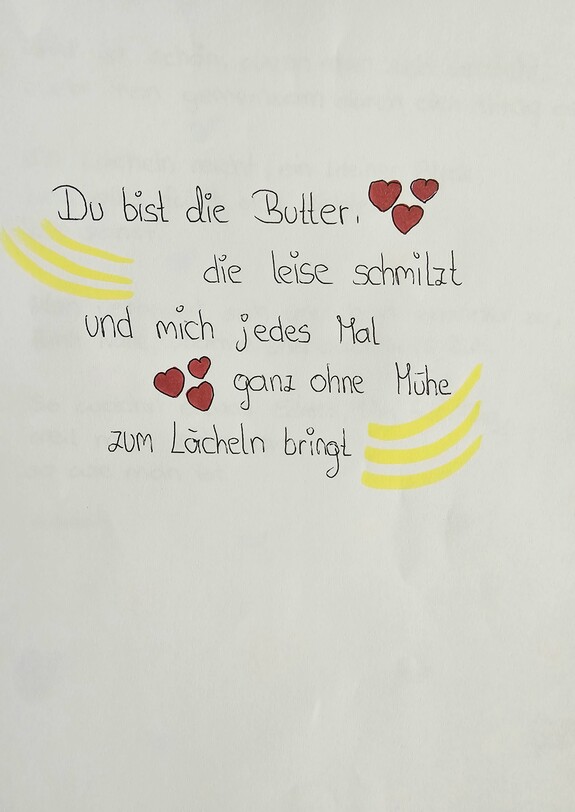 Du bist die Butter,
die leise schmilzt
und mich jedes Mal
ganz ohne Mühe
zum Lächeln bringt